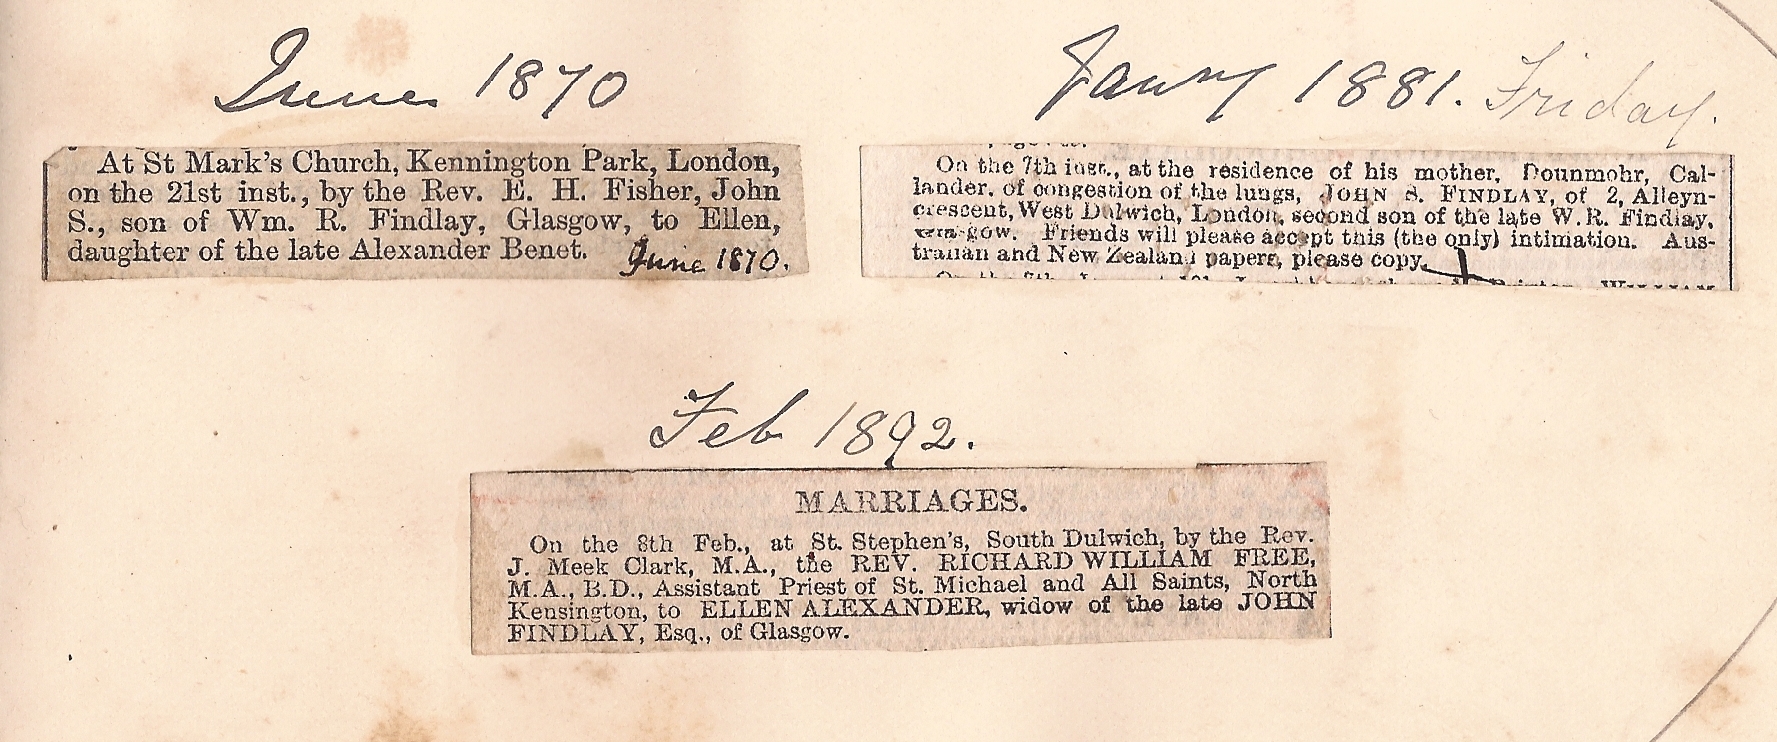 June 1870
At St Mark's Church, Kennington Park, London,
on the 21st inst., by the Rev. E. H. Fisher, John
S., son of Wm. R. Findlay, Glasgow, to Ellen,
daughter of the late Alexander Benet.
June 1870.
Jany 1881. Friday.
On the 7th inst., at the residence of his mother, Dounmohr, Cal-
lander, of congestion of the lungs, JOHN S. FINDLAY, of 2, Alleyn-
crescent, West Dulwich, London, second son of the late W. R. Findlay,
Glasgow. Friends will please accept this (the only) intimation. Aus-
tralian and New Zealand papers, please copy.
On the 7th
WILLIAM
Feb 1892.
MARRIAGES.
On the 8th Feb., at St. Stephen's, South Dulwich, by the Rev.
J. Meek Clark, M.A., the REV. RICHARD WILLIAM FREE,
M.A., B.D., Assistant Priest of St. Michael and All Saints, North
Kensington, to ELLEN ALEXANDER, widow of the late JOHN
FINDLAY, Esq., of Glasgow.